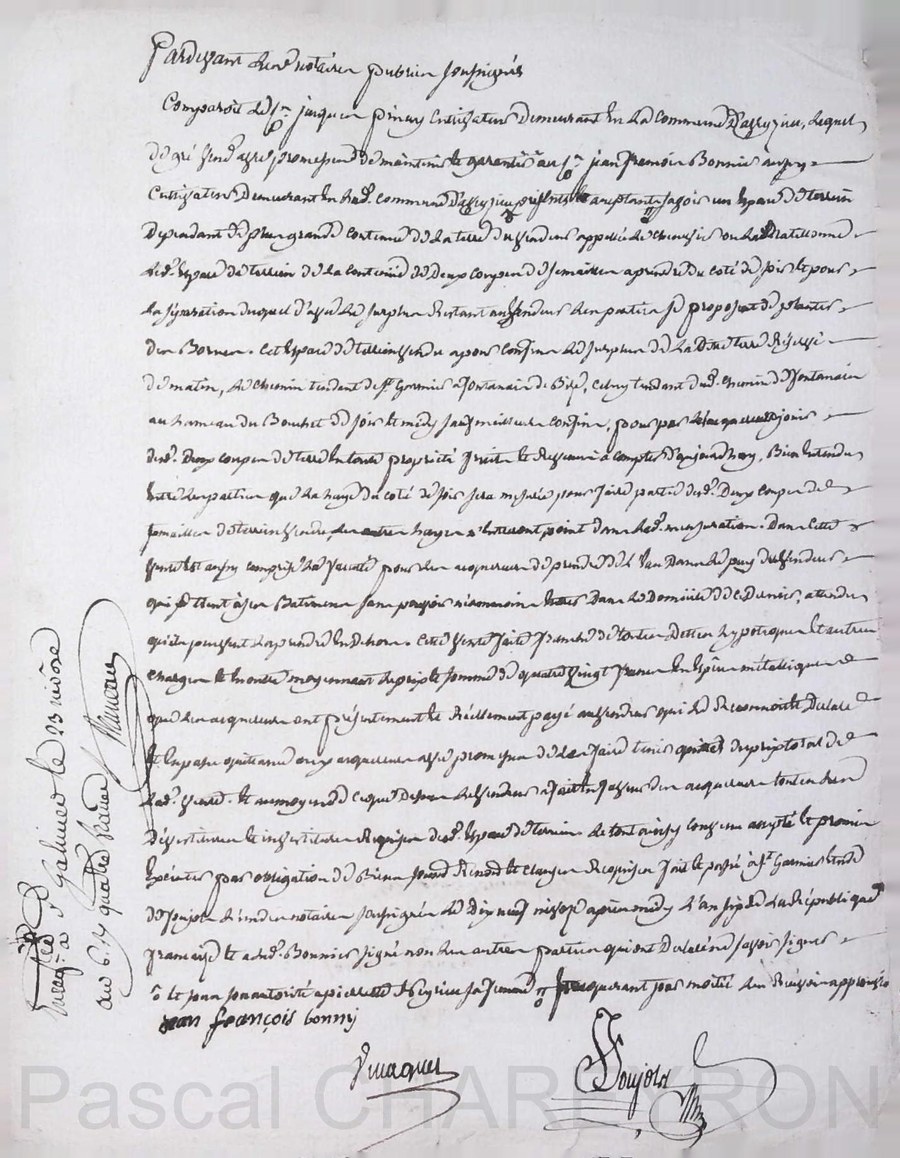 Pardevant les notaires publics soussignés
Comparoit le Sr. jacques pinay Cultivateur Demeurant en la commune D'aveyzieu, Lequel
de gré vend avec promesse de maintenir et garantir au Sr. jean françois Bonnier
Cultivateur Demeurant en lad. commune D'aveyzieu présents et acceptants savoir un espace de terrein
Dépendant de plus grand contenu de la terre du vendeur appellée
led. espace de terrein de la contenue de Deux coupes de semailles a prendre du coté de soir et pour
la séparation duquel d'avec le surplus Restant au vendeur les parties se proposent de planter
des Bornes. Cet espace de terrein vendu a pour Confins le surplus de la Ditte terre Réservé
de matin, le chemin tendant de St. Garmier a fontanais de Bise, celuy tendant dud. chemin de fontanais
au hameau du Bouchet de soir et midy sauf meilleurs confins, pour par les acquéreurs jouir
desd. Deux coupes de terre en toute propriété fruits et Revenus a compter D'aujourd'huy, Bien entendu
entre les parties que la haye du coté de soir sera mesurée pour faire partie desd. Deux coupes de
semailles de terrein vendu les autres hayes n'entreront point dans lad. mensuration. Dans cette
vente est aussy comprise la faculté pour les acquereurs de prendre de l'eau Dans le puy du vendeur
qui est situé à ses Batimens sans pouvoir néanmoins entrer Dans le Domicile de ce Dernier, attendu
qu'ils peuvent la prendre en Dehors Cette vente faite franche de toutes Dettes hypotèques et autres
charges et moyennant le prix et somme de quatre vingt francs en espèces métalliques
que les acquereurs ont présentement et Réellement payé au vendeur qui le Reconnoit et Declare
et en passe quittance aux acquereurs avec promesse de les faire tenir quittes du prix total de
lad. vente. et au moyend de ce que Dessus le vendeur a fait en faveur des acquereurs toutes les
Dévestitures et investitures Requises dud. espace de terrein le tout ainsy convenu accepté et promis
exécuter par obligation de Biens soumis Renoncé et clauses Requises fait et passé à St. Garmier Etude
de Soujols l'un des notaires soussignés le Dix neuf nivose après midy L'an six de la République
française et a led. Bonnier signé non les autres parties qui ont Déclaré ne savoir signer
jean françois bonnij
Soujols
Enreg. à St Galmier le 23 nivôse
an 6.